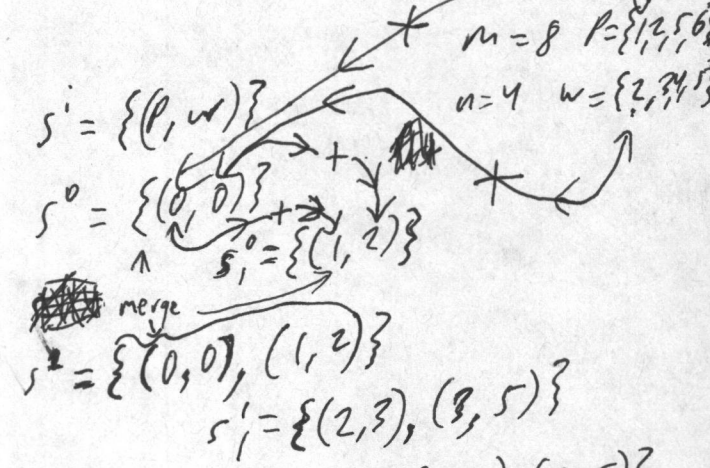 m = 8 P = {1,2,5,6
n = 4 w = {2,3,4,5}
sⁱ = {(P, w)}
s⁰ = {(0, 0)}
s₁⁰ = {(1, 2)}
merge
s¹ = {(0,0), (1,2)}
s₁¹ = {(2,3), (3,5)}